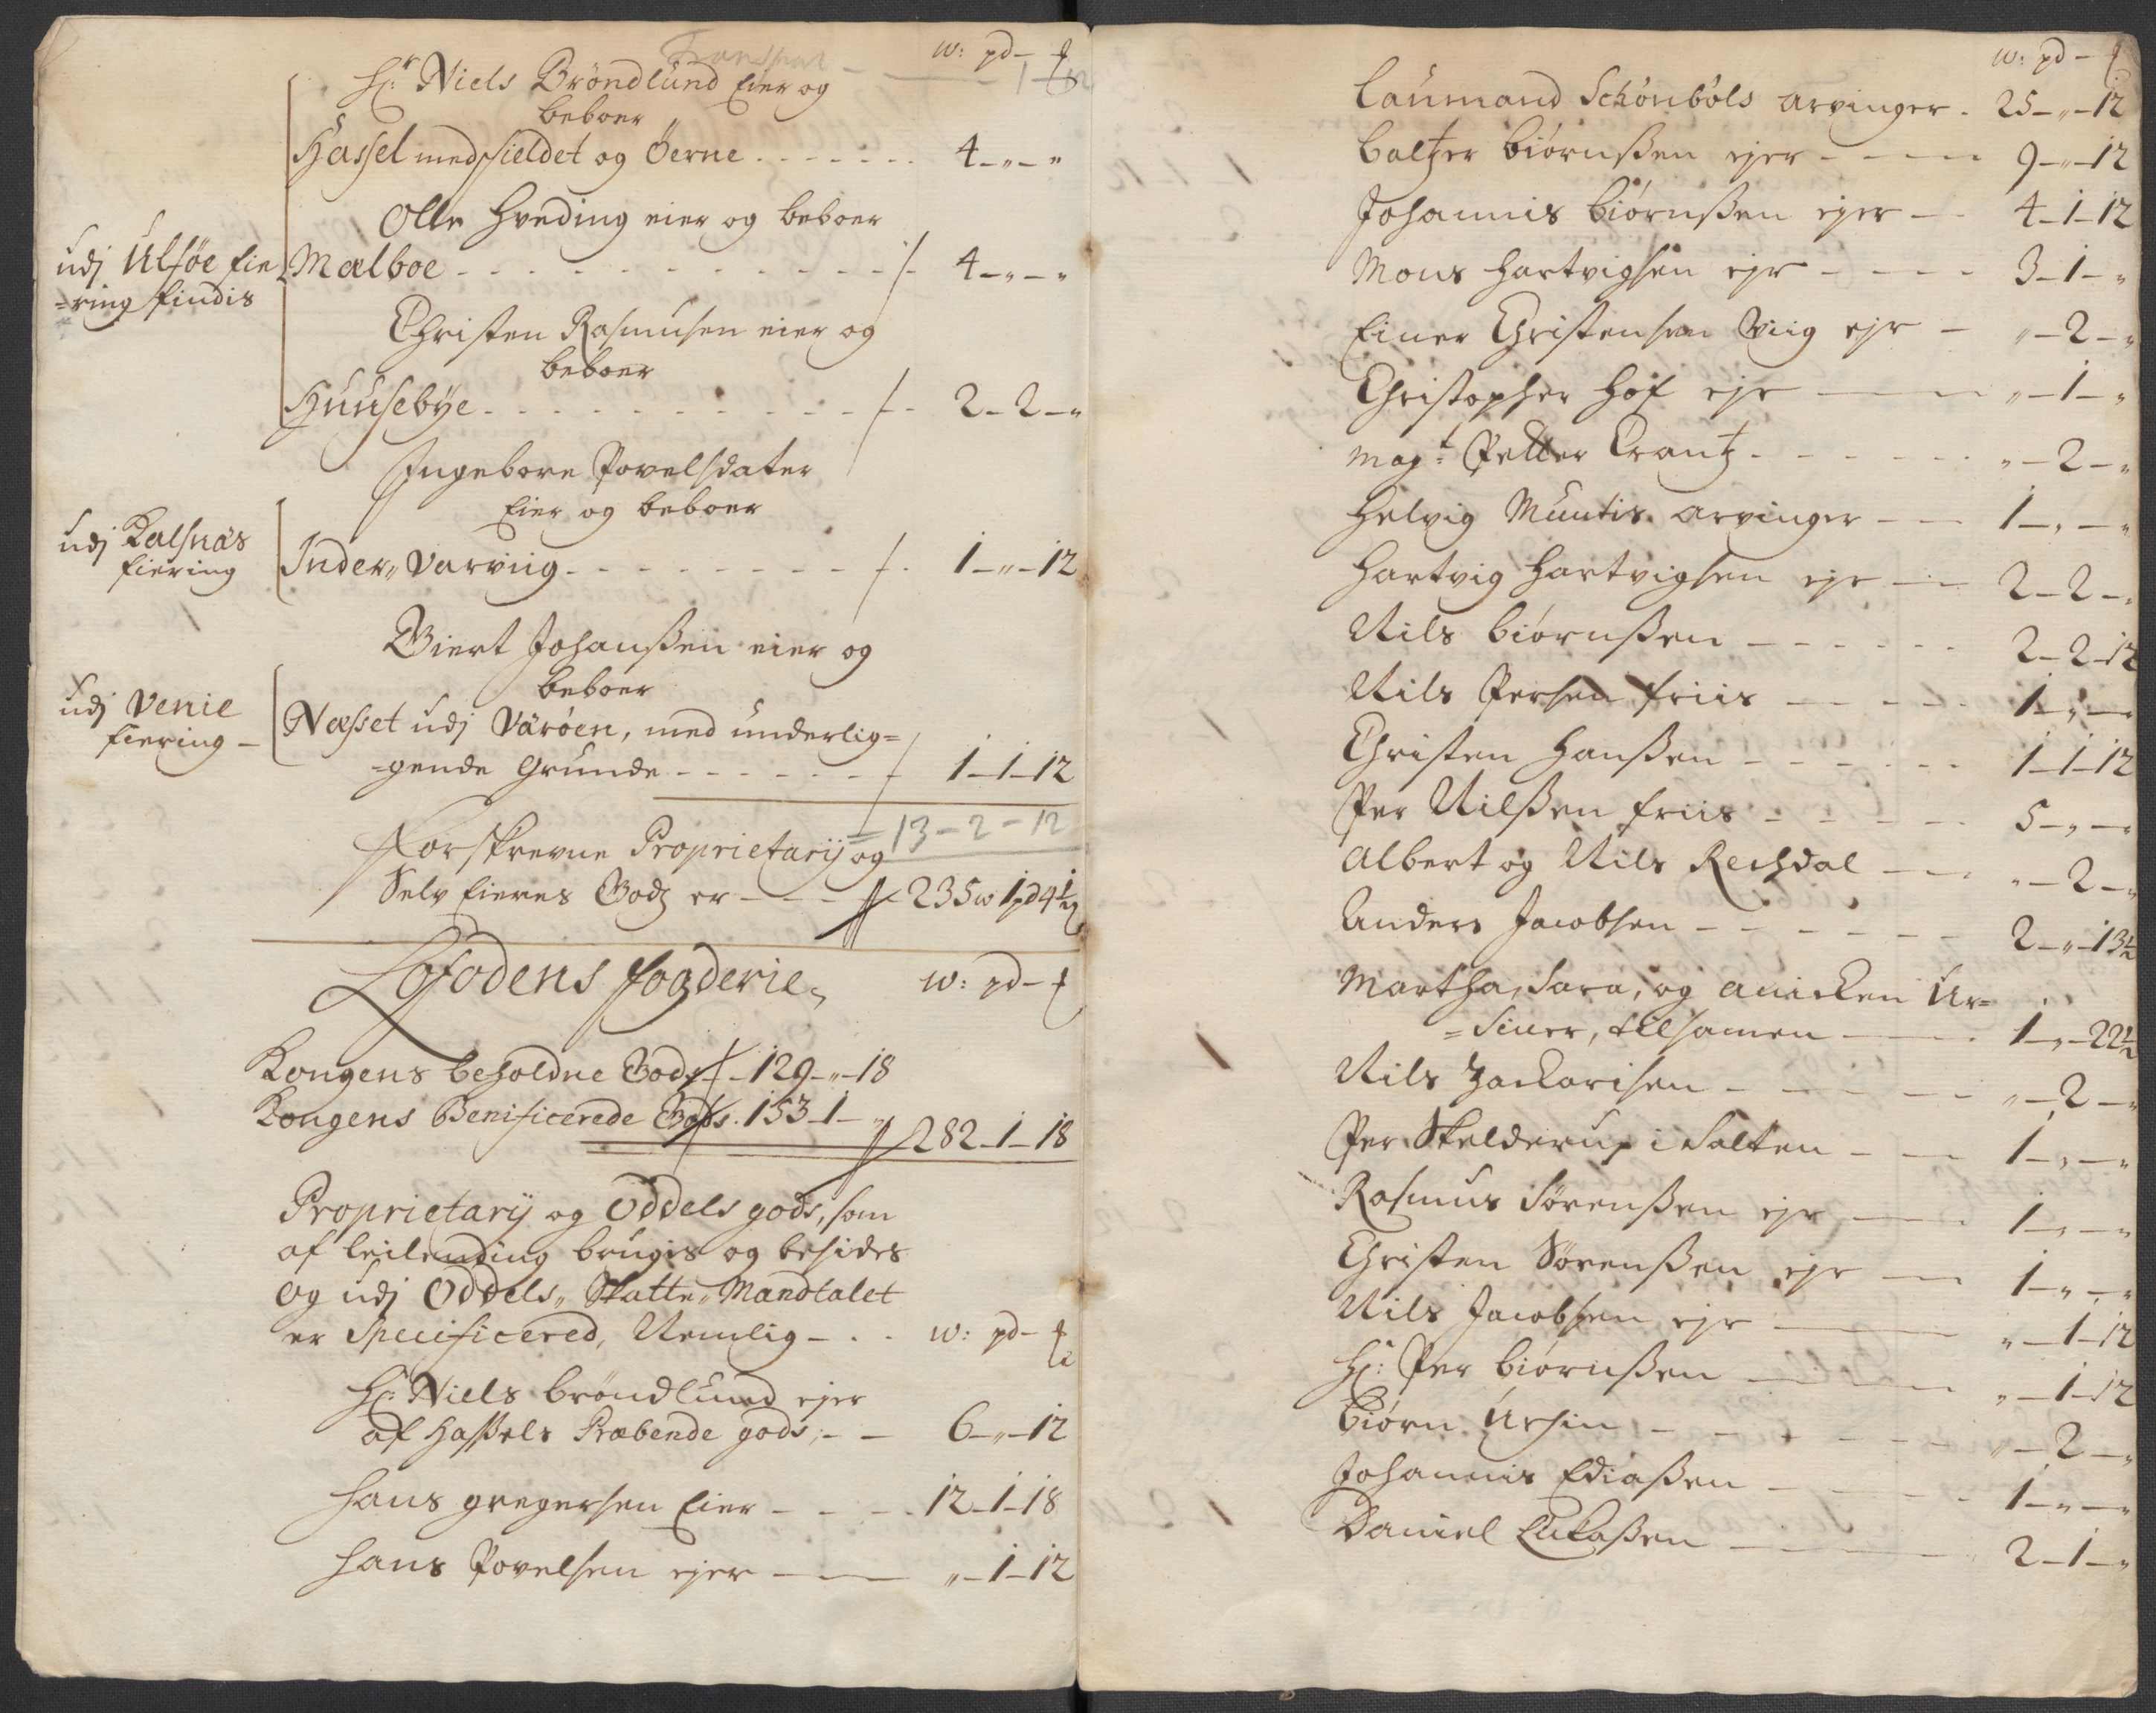 Transport – 1 – 12
w: pd – ₰
Hr: Niels Bröndlund Eier og
beboer
Hassel med fieldet og Öerne . . . . . . . 4 – „ – „
Olle Hveding eier og beboer
udj Ulföe fie
=ring findis
Mælboe - - - - - - - - - - - 4 – „ – „
Christen Rasmusen eier og
beboer
Huusebÿe - - - - - - - - - - 2 – 2 – „
Ingebore Povelsdater
Eier og beboer
udj Kalsnæs
fiering
Inder„ Varviig - - - - - - - - - 1 – „ – 12
Giert Johanßen eier og
beboer
udj Venie
fiering –
Næsset udj Väröen, med underlig=
=gende Grunde - - - - - - - 1 – 1 – 12
= 13 – 2 – 12
Forskrevne Proprietarij og
Selv Eieres Godz er - - - 235 w 1 pd 4½ ₰
Lofodens fogderie, w: pd – ₰
Kongens beholdne Gods - - 129 – „ – 18
Kongens Benificerede Gods. 153 – 1 – „
282 – 1 – 18
Proprietarij og Oddels gods, som
af leilending brugis og besides
og udj Oddels„ Skatte„ Mandtalet
er Specificered, Nemlig - . . w: pd – ₰
Hr: Niels bröndlund ejer
af Haßels Præbende gods, - - 6 – „ – 12
Hans gregersen Eier - - - 12 – 1 – 18
Hans Povelsen ejer — „ – 1 – 12
w: pd – ₰
Laumand Schönböls arvinger . 25 – „ – 12
Baltzer biörnßen ejer - - - 9 – „ – 12
Johannis biörnßen ejer - - 4 – 1 – 12
Mons Hartvigsen ejr - - - 3 – 1 – „
Einer Christensen Viig ejr – „ – 2 – „
Christopher Hof eje — „ – 1 – „
Magr: Petter Crantz - - - - - - „ – 2 – „
Helvig Muntis arvinger - - 1 – „ – „
Hartvig Hartvigsen eje — 2 – 2 – „
Nils biörnßen - - - - - - 2 – 2 – 12
Nils Persen friis - - - - - 1 – „ – „
Christen Hanßen - - - - - - 1 – 1 – 12
Per Nilßen friis - - - - - 5 – „ – „
Albert og Nils Rechdal — „ – 2 – „
Anders Jacobsen - - - - - - 2 – „ – 13½
Martha, Sara, og Anicken Ur=
=siner, tilsamen — 1 – „ – 22½
Nils Zackarisen - - - - - „ – 2 – „
Per Skelderup i Salten - — 1 – „ – „
Rasmus Sörenßen eje — 1 – „ – „
Christen Sörenßen eje — 1 – „ – „
Nils Jacobsen eje — „ – 1 – 12
Hr: Per biörnßen — „ – 1 – 12
Biörn Ursin - - - - - - „ – 2 – „
Johannis Ediaßen - - - - - 1 – „ – „
Daniel Lukaßen — 2 – 1 – „